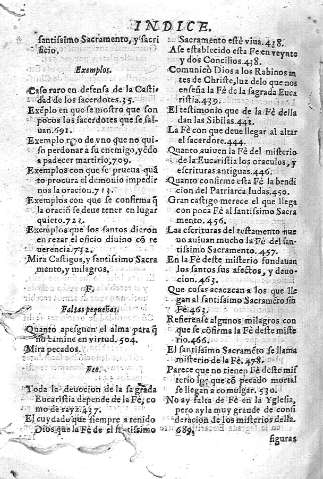 INDICE.
santissimo Sacramento, y sacri
ficio.
Exemplos.
Caso raro en defensa de la Casti
dad de los sacerdotes.35.
Exẽplo en que se mostro que son
pocos los sacerdotes que se sal-
uan.691.
Exemplo de vno que no qui-
so perdonar a su enemigo, yẽdo
a padecer martirio, 709.
Exemplos con que se prueua quã
to procura el demonio impedir
nos la oracion.713.
Exemplos con que se confirma q̃
la oraciõ se deue tener en lugar
quieto.723.
Exemplos que los santos dieron
en rezar el oficio diuino cõ re
uerencia.752.
Mira Castigos, y santissimo Sacra
mento, y milagros,
F.
Faltas pequeñas.
Quanto apesguen el alma para q̃
no camine en virtud. 504.
Mira pecados.
Fee.
Toda la deuocion de la sagrada
Eucaristia depende de la Fè, co
mo de rayz.437.
El cuydado que siempre a tenido
Dios que la Fè de el santissimo
Sacramento estè viua.438.
A se establecido esta Fè en veynte
y dos Concilios.438.
Comunicò Dios a los Rabinos an
tes de Christo, luz de lo que nos
enseña la Fè de la sagrada Euca
ristia.439.
El testimonio que da la Fè della
dan las Sibilas.442.
La Fè con que deue llegar al altar
el sacerdote.444.
Quanto auiuen la Fè del misterio
de la Eucaristia los oraculos, y
escrituras antiguas.446.
Quanto confirme esta Fè la bendi
cion del Patriarca Iudas.450.
Gran castigo merece el que llega
con poca Fè al santissimo Sacra
mento. 456.
Las escrituras del testamento nue
uo auiuan mucho la Fè del san-
tissimo Sacramento. 457.
En la Fè deste misterio fundauan
los santos sus afectos, y deuo-
cion.463.
Que cosas acaezcan a los que lle
gan al santissimo Sacramẽto sin
Fè.463.
Refierense algunos milagros con
que se cõfirma la Fè deste miste
rio.466.
El santissimo Sacramẽto se llama
misterio de la Fè.478.
Parece que no tienen Fè deste mis
terio los que cõ pecado mortal
se llegan a comulgar. 530.
No ay falta de Fè en la Yglesia,
pero ay la muy grande de consi
deracion de los misterios della.
689.
figuras